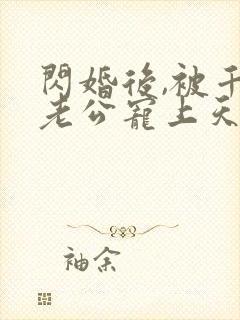 閃婚後,被千
老公寵上天
袖余